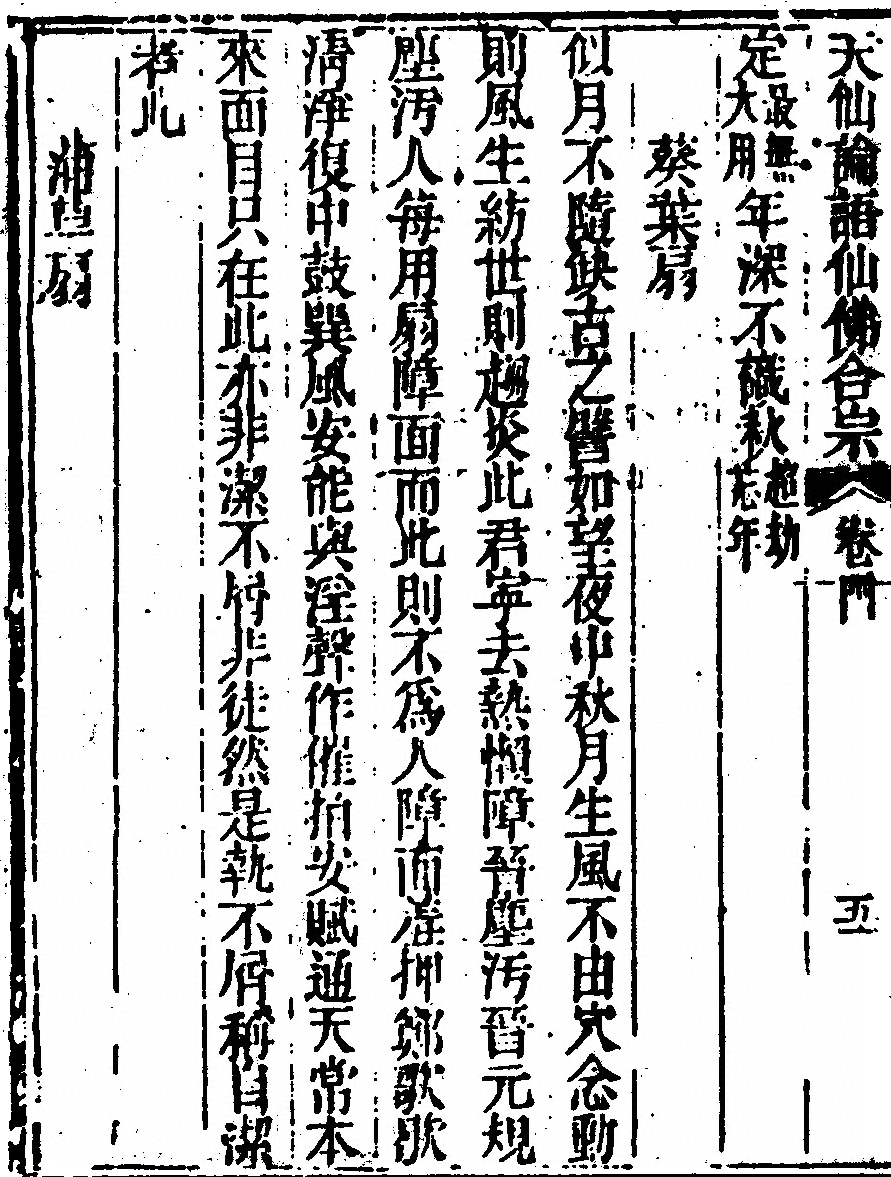 天仙論語仙佛合宗 卷門 五
定設無大用年深不識秋超劫忘年
葵葉扇
似月不隨缺古之譬如望夜中秋月生風不由穴念動
則風生紡世則趨炎此君寧去熱懶障晉塵汚晉元規
塵汚人每用扇障面而此則不為人障面差押鄭歌歌
清淨復中鼓巽風安能與淫聲作催拍安賦通天常本
來面目只在此亦非潔不屑非徒然是執不屑稱自潔
者此
蒲葵扇